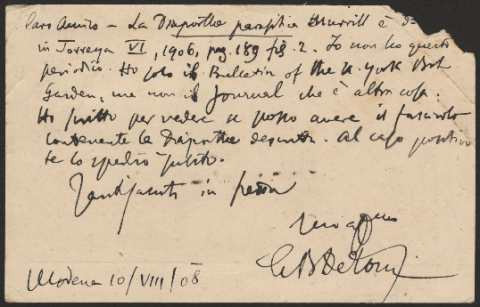 Caro Amico – La Diaporthe parasitica Murrill è
in Torreya VI, 1906, pag. 189 fig. 2. Io non ho questo
periodico. Ho solo il Bulletin of the N. York Bot.
Garden, ma non il Journal che è altra cosa.
Ho scritto per vedere se posso avere il fascicolo
contenente la Diaporthe descritta. Al caso positivo
te lo spedirò subito.
in fretta
tuo aff.mo
G B De Toni
Modena 10/VIII/08